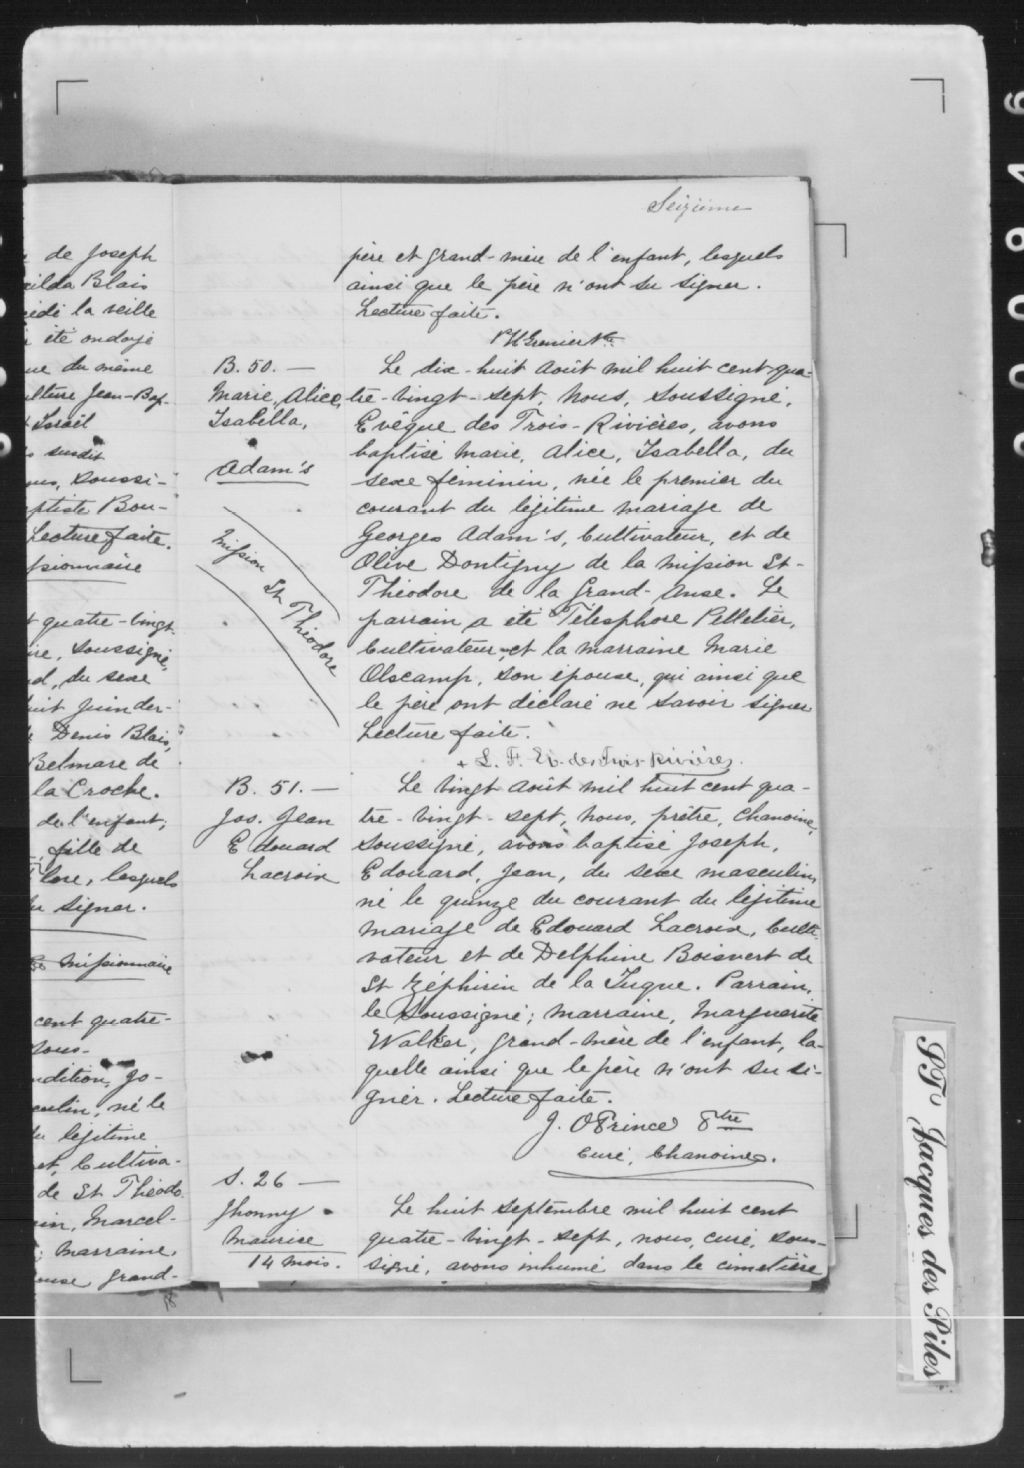 Seizième
de Joseph
ilda Blais
la veille
été ondoyé
ue du même
Jean-Bap-
Israël
susdit
soussi-
ptiste Bou-
Lecture faite.
ssionnaire
quatre-vingt-
ire, soussigné,
du sexe
juin der-
Denis Blais,
Belmare de
la Croche.
de l'enfant;
fille de
lore, lesquels
signer.
missionnaire
cent quatre-
sous-
ndition, Jo-
culin, né le
légitime
et, cultiva-
de St Théodo
in, Marcel-
marraine,
ouse grand-
père et grand-mère de l'enfant, lesquels
ainsi que le père n'ont su signer.
Lecture faite.
B. 50. —
Marie, Alice,
Isabella,
Adam's
Mission St Théodore
Le dix-huit août mil huit cent qua-
tre-vingt-sept, nous, soussigné,
Evêque des Trois-Rivières, avons
baptisé Marie, Alice, Isabella, du
sexe féminin, née le premier du
courant du légitime mariage de
Georges Adam's, cultivateur, et de
Olive Dontigny de la mission St-
Théodore de la Grand-Anse. Le
parrain a été Télesphore Pelletier,
cultivateur, et la marraine Marie
Olscamp, son épouse, qui ainsi que
le père ont déclaré ne savoir signer
Lecture faite.
+ L. F. Ev. des Trois-Rivières.
B. 51. —
Jos. Jean
Edouard
Lacroix
Le vingt août mil huit cent qua-
tre-vingt-sept, nous, prêtre, chanoine,
soussigné, avons baptisé Joseph,
Edouard, Jean, du sexe masculin,
né le quinze du courant du légitime
mariage de Edouard Lacroix, culti-
vateur et de Delphine Boisvert de
St Zéphirin de la Tuque. Parrain,
le soussigné; marraine, Marguerite
Walker, grand-mère de l'enfant, la-
quelle ainsi que le père n'ont su si-
gner. Lecture faite.
J. O Prince Ptre
Curé, Chanoine.
S. 26 —
Jhonny
Maurice
14 mois.
Le huit septembre mil huit cent
quatre-vingt-sept, nous, curé, sous-
signé, avons inhumé dans le cimetière
Jacques des Piles